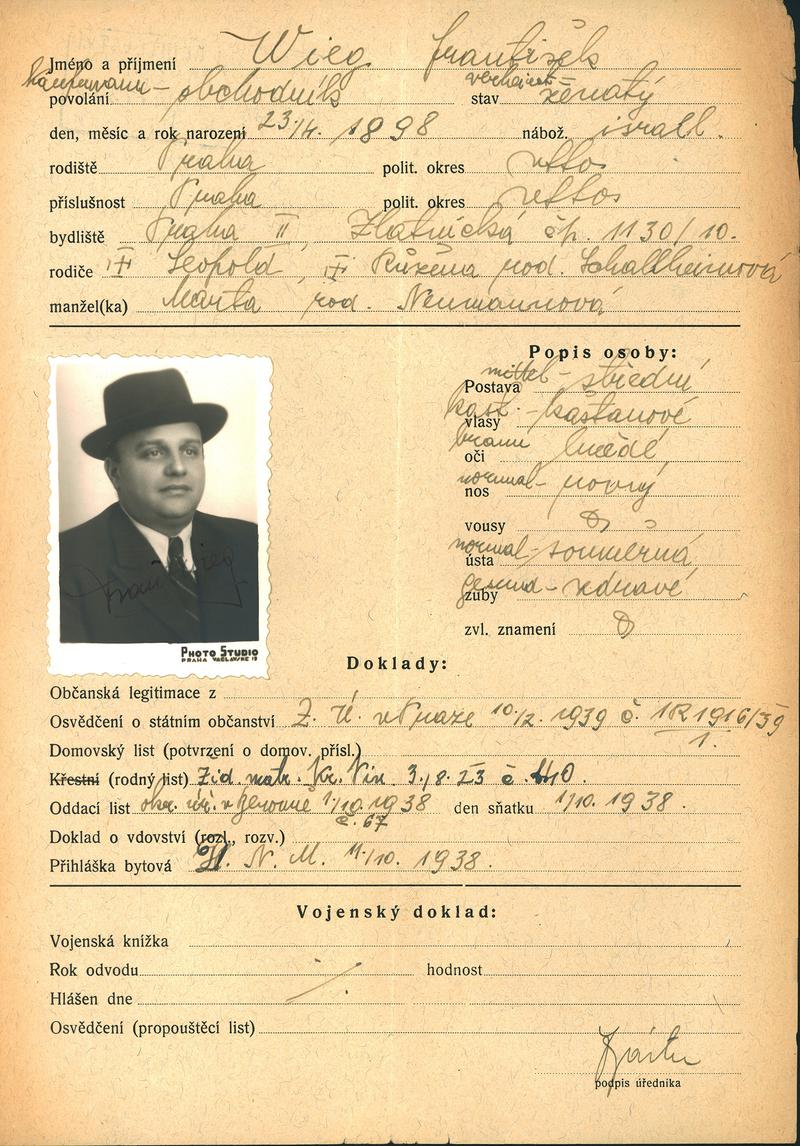 Jméno a příjmení Wieg František
Kaufmann - verheirat -
povolání obchodník stav ženatý
den, měsíc a rok narození 23./4. 1898 nábož. israel.
rodiště Praha polit. okres
příslušnost Praha polit. okres
bydliště Praha II, Zlatnická čp. 1130/10.
rodiče Leopold, Růžena rod. Schallheimová
manžel(ka) Marta rod. Neumannová
Popis osoby:
mittel -
Postava střední
kast. -
vlasy kaštanové
braun
oči hnědé
normal -
nos rovný
vousy
normal -
ústa souměrná
gesund -
zuby zdravé
zvl. znamení
Frant. Wieg
PHOTO STUDIO
PRAHA VÁCLAVSKÉ 19
Doklady:
Občanská legitimace z
Osvědčení o státním občanství Z. Ú. v Praze 10./2. 1939 č. 1916/39
1.
Domovský list (potvrzení o domov. přísl.)
Křestní (rodný list) Žid. matr. Kr. Vin. 3./8. 23 č.
Oddací list okr. úř. v Berouně 1/10. 1938 den sňatku 1/10. 1938.
č. 67
Doklad o vdovství (rozl., rozv.)
Přihláška bytová H. N. M. 11./10. 1938.
Vojenský doklad:
Vojenská knížka
Rok odvodu hodnost
Hlášen dne
Osvědčení (propouštěcí list)
podpis úředníka